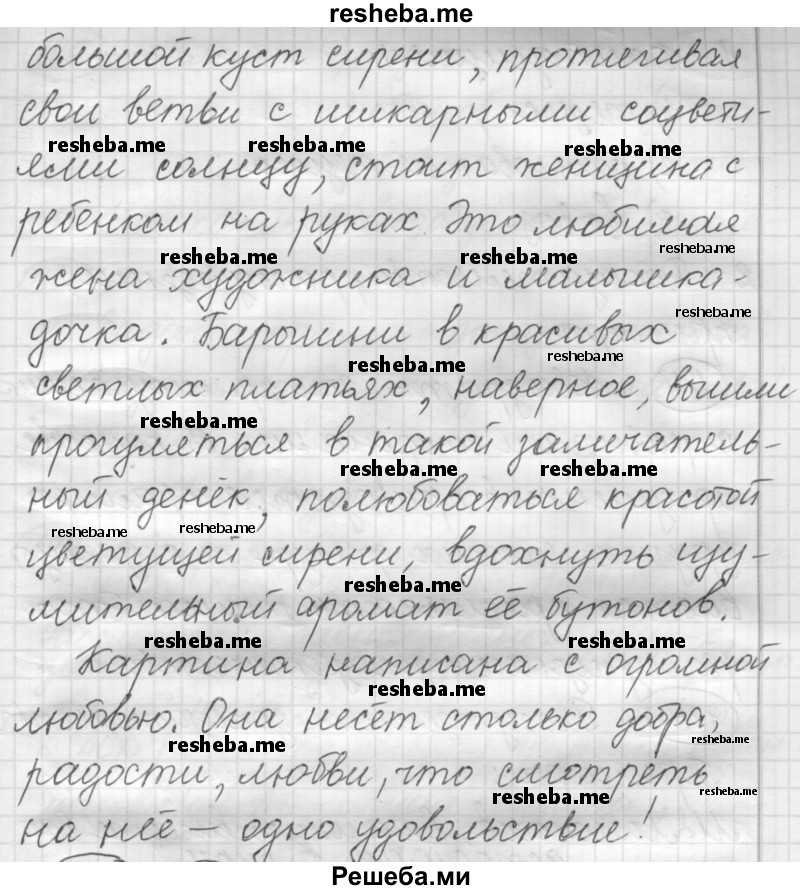 resheba.me
большой куст сирени, протягивая
свои ветви с шикарными соцвети-
resheba.me resheba.me resheba.me
ями солнцу, стоит женщина с
ребенком на руках. Это любимая
resheba.me resheba.me resheba.me
жена художника и малышка-
resheba.me
дочка. Барышни в красивых
resheba.me resheba.me
светлых платьях, наверное, вышли
resheba.me
прогуляться в такой замечатель-
resheba.me resheba.me
ный денёк, полюбоваться красотой
resheba.me resheba.me
цветущей сирени, вдохнуть изу-
resheba.me
мительный аромат её бутонов.
resheba.me resheba.me
Картина написана с огромной
resheba.me
любовью. Она несёт столько добра,
resheba.me resheba.me
радости, любви, что смотреть
resheba.me resheba.me
на неё – одно удовольствие!
Решеба.ми